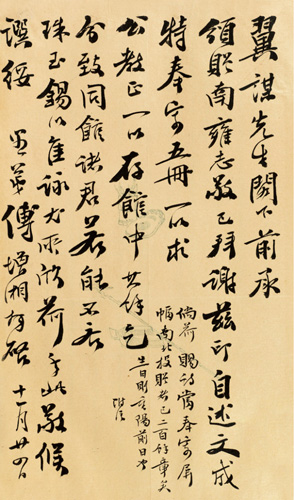 翼謀先生閣下前承
頒貽南雍志敬已拜謝茲印自述文成
特奉寄五冊一以求
公教正一以存館中其餘乞
分致同館諸君若能不吝
珠玉錫以佳詠尤所欣荷手此敬候
譔綏 愚弟傅增湘拜啟 十一月廿四日
倘荷 賜詩當奉寄屏
幅南北投贈者已二百餘章矣
生日則重陽前日也